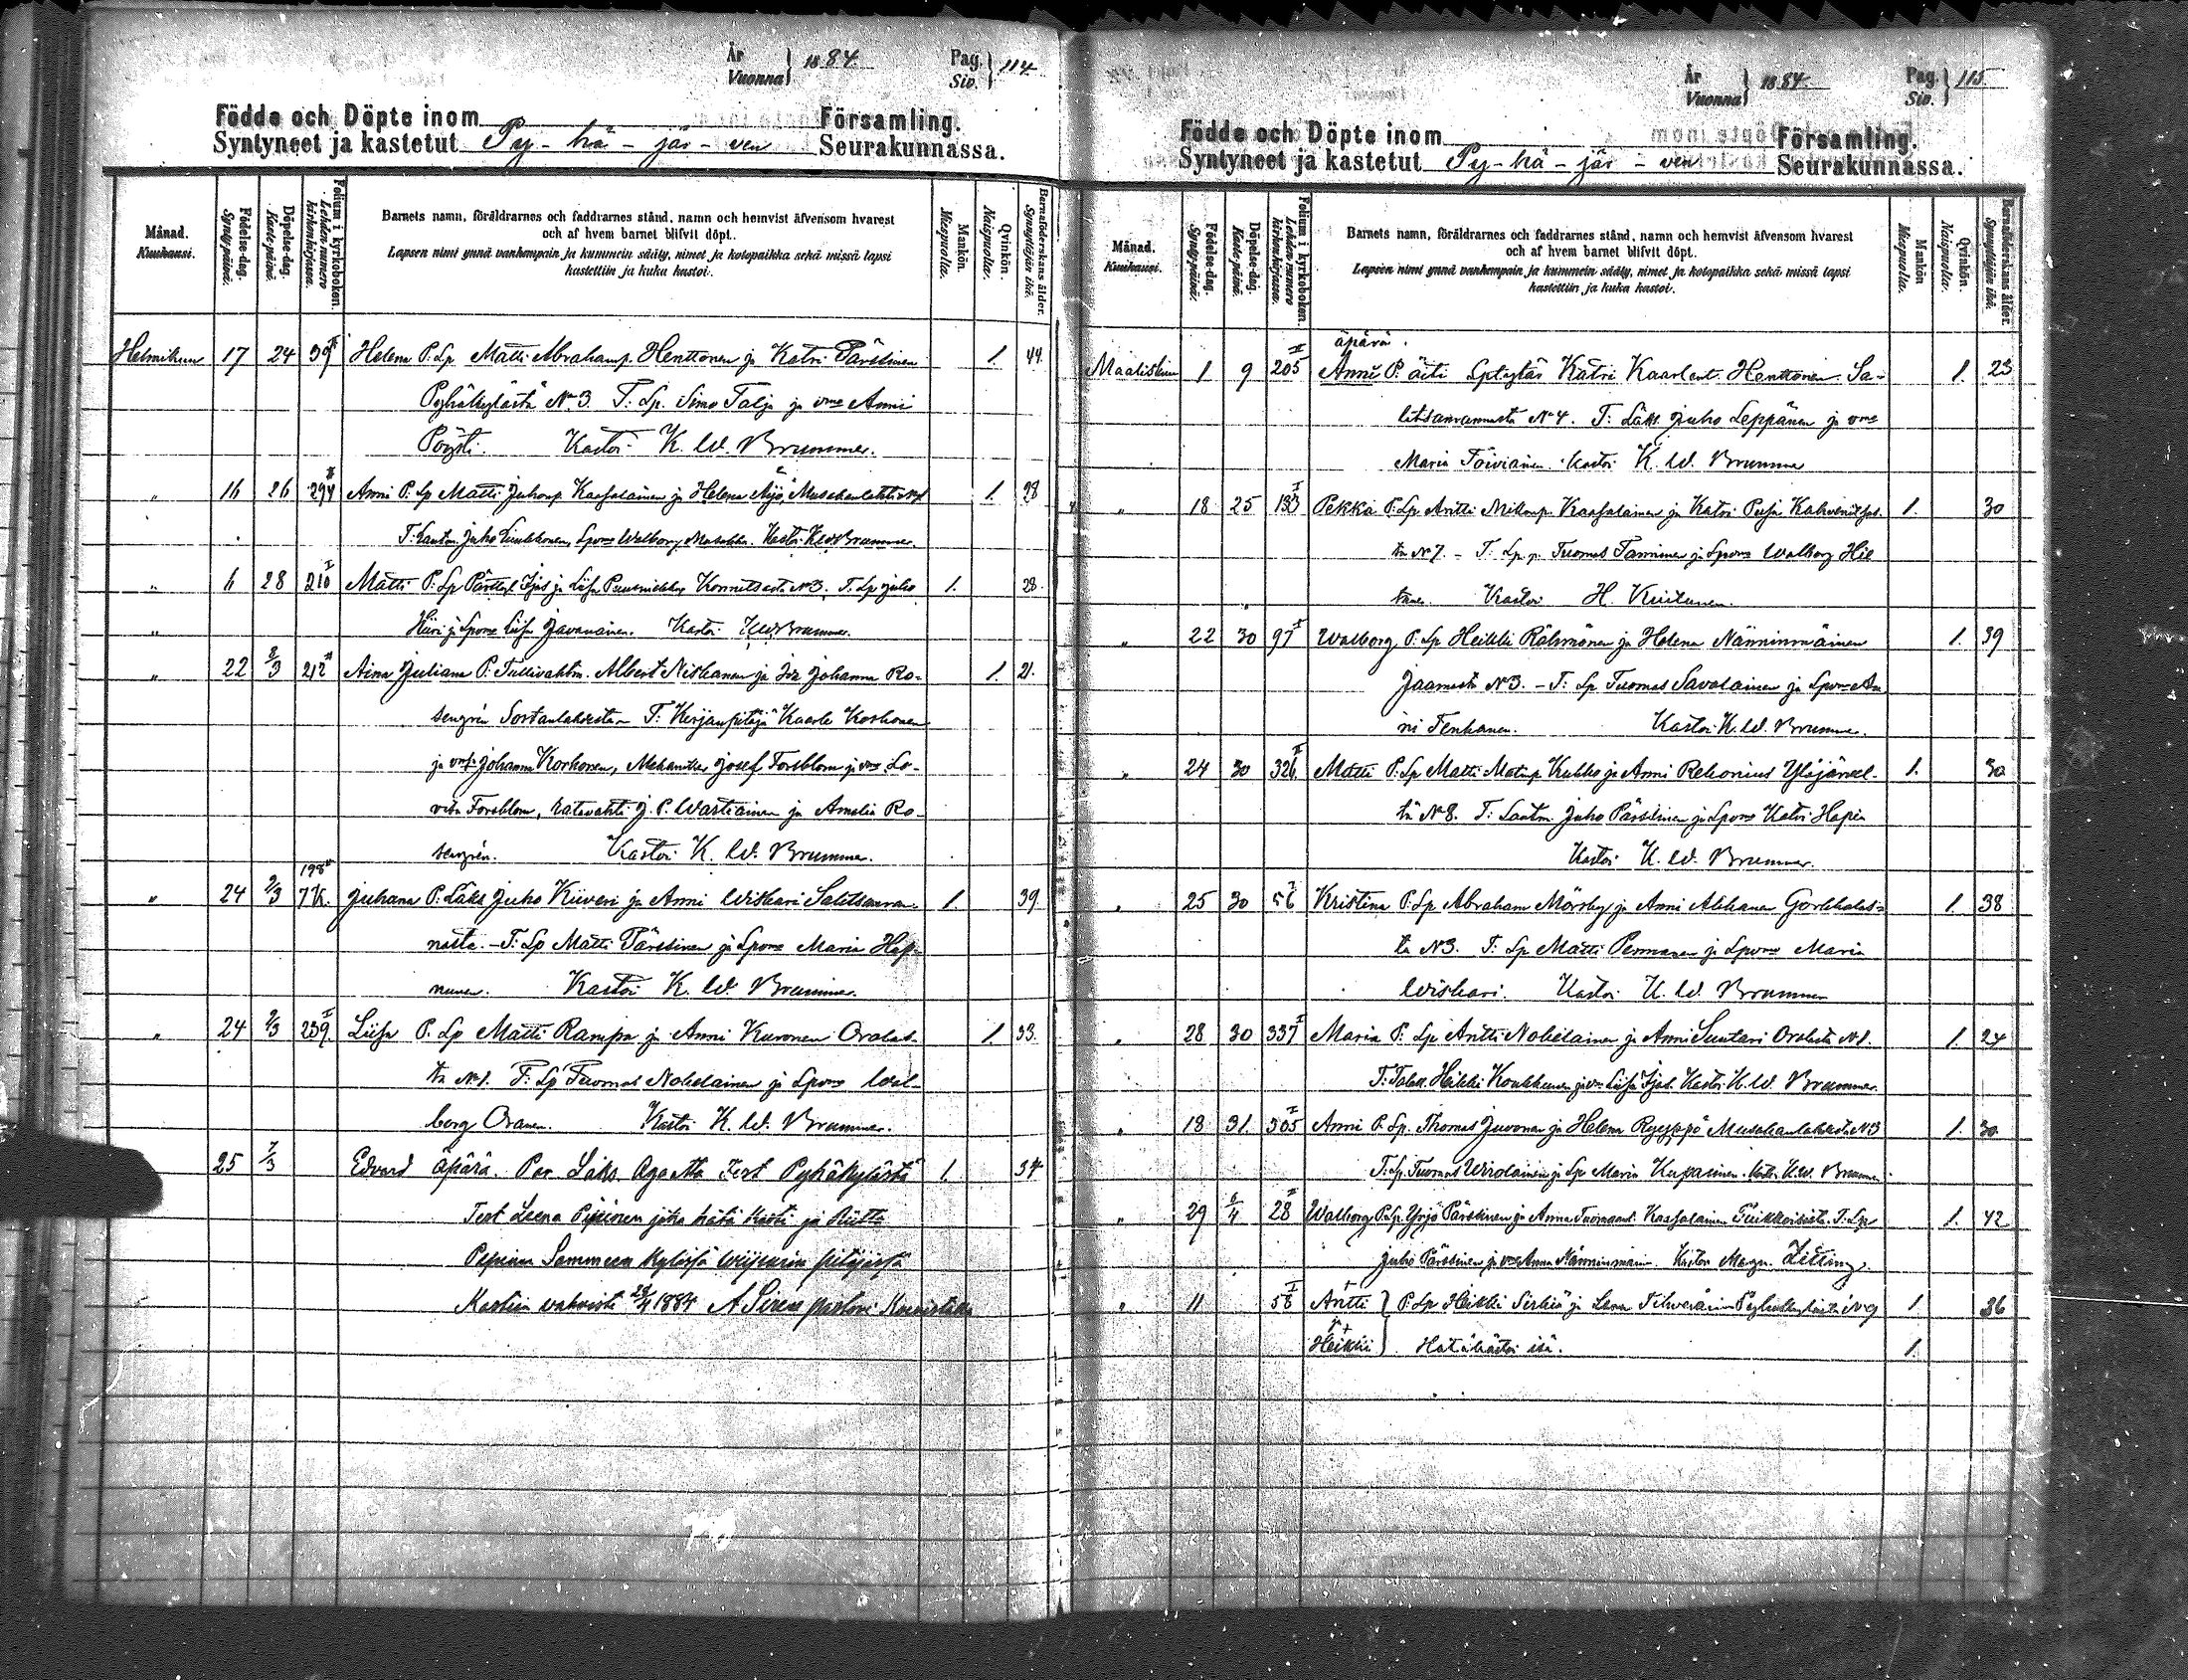 År 1884. Pag. 114
Vuonna Siv.
Födde och Döpte inom Församling.
Syntyneet ja kastetut Py-hä-jär-ven Seurakunnassa.
Månad. Kuukausi.
Födelse-dag. Synty-päivä.
Döpelse-dag. Kaste-päivä.
Folium i kyrkoboken. Lehden numero kirkonkirjassa.
Barnets namn, föräldrarnes och faddrarnes stånd, namn och hemvist äfvensom hvarest
och af hvem barnet blifvit döpt.
Lapsen nimi ynnä vanhempain ja kummein sääty, nimet ja kotopaikka sekä missä lapsi
kastettiin ja kuka kastoi.
Mankön. Miespuolta.
Qvinkön. Naispuolta.
Barnaföderskans ålder. Synnyttäjän ikä.
Helmikuu 17 24 39 II Helena P. Lp Matti Abrahamp. Henttonen ja Katri Pärssinen 1. 44
Pyhäkylästä No 3 T: Lp. Simo Talja ja vmo Anni
Pöysti. Kastoi K. W. Brummer.
" 16 26 294 II Anni P. Lp Matti Juhonp. Kaasalainen ja Helena Äijö, 1. 28
T. Juho Liukkonen, Lpvmo Walborg Kastoi K W Brummer.
" 6 28 210 I Matti P. Lp ja Liisa Konnitsasta No 3, T. Lp Juho 1. 28.
" Hiiri ja Lpvmo Liisa Javanainen. Kastoi K W Brummer.
" 22 2/3 212 II Aina Juliana P. Tullivahtm. Albert Niskanen ja Ida Johanna Ro- 1. 21.
sengrén Sortanlahdesta T: Kirjanpitäjä Kaarle Korhonen
ja Johanna Korhonen, Josef Forsblom ja vmo Lo-
visa Forsblom, J. P. Wartiainen ja Amalia Ro-
sengrén. Kastoi K. W. Brummer.
198 II
" 24 2/3 7K. Juhana P. Läks Juho Kiiveri ja Anni Wiskari Salitsanran- 1. 39
nasta. - T: Lp Matti Pärssinen ja Lpvmo Maria Hap-
nunen. Kastoi K. W. Brummer.
" 24 2/3 239. I Liisa P. Lp Matti Rampa ja Anni Kuronen Oralas- 1. 33.
ta No 1. T: Lp Tuomas Nokelainen ja Lpvmo Wal-
borg Oranen. Kastoi K. W. Brummer.
25 7/3 Edvard äpärä. Par. Läks. Agatta Test Pyhäkylästä 1. 34
Test Leena Pipinen joka hätä kasti ja Riitta
Pipinen Sammeen kylässä Wiipurin pitäjässä
Kastein vahvisti 28/4 1884 A Siren pastori Koivistolla
År 1884. Pag. 115
Vuonna Siv.
Födde och Döpte inom Församling.
Syntyneet ja kastetut Py-hä-jär-ven Seurakunnassa.
Månad. Kuukausi.
Födelse-dag. Synty-päivä.
Döpelse-dag. Kaste-päivä.
Folium i kyrkoboken. Lehden numero kirkonkirjassa.
Barnets namn, föräldrarnes och faddrarnes stånd, namn och hemvist äfvensom hvarest
och af hvem barnet blifvit döpt.
Lapsen nimi ynnä vanhempain ja kummein sääty, nimet ja kotopaikka sekä missä lapsi
kastettiin ja kuka kastoi.
Mankön Miespuolta.
Qvinkön. Naispuolta.
Barnaföderskans ålder. Synnyttäjän ikä.
äpärä.
Maaliskuu 1 9 205 II Anni P. äiti Lptytär Katri Kaarlent. Henttonen Sa- 1. 23
litsanrannasta No 4. T: Läks. Juho Leppänen ja vmo
Maria Toiviainen. Kastoi K. W. Brummer
" 18 25 133 I Pekka P. Lp Antti Mikonp. Kaasalainen ja Katri Pusa Kahvenitsas- 1. 30
ta No 7. - T: Lp. p. Tuomas Tamminen ja Lpvmo Walborg Hie
tanen. Kastoi H. Kiuttunen.
" 22 30 97 I Walborg P. Lp Heikki Rähmönen ja Helena Nänninmäinen 1. 39
Jaamasta No 3. - T: Lp Tuomas Savolainen ja Lpvmo An
ni Tenkanen. Kastoi K. W. Brummer.
" 24 30 326 II Matti P. Lp Matti Matinp. Kukko ja Anni Rekonius Yläjärvel- 1. 30
tä No 8. T: Lautm. Juho Pärssinen ja Lpvmo Katri Hapia
Kastoi K. W. Brummer.
" 25 30 56 I Kristina P. Lp Abraham Mörsky ja Anni Akkanen Gorkkalas- 1. 38
ta No 3. T: Lp Matti Permanen ja Lpvmo Maria
Wiskari. Kastoi K. W. Brummer
" 28 30 337 I Maria P. Lp Antti Nokelainen ja Anni Suutari Oralasta No 1. 1. 24
T: Talok. Heikki Koukkunen ja vmo Liisa Kastoi K. W. Brummer.
" 18 31. 305 I Anni P. Lp. Thomas Juvonen ja Helena Ryyppö Musakanlahdesta No 3 1. 30
T: Lp. Tuomas Wirolainen ja Lp Maria Kuparinen. Kastoi K. W. Brummer
" 29 6/4 28 I Walborg P. Lp. Yrjö Pärssinen ja Anna Tuomaant. Kaasalainen T: Lp 1. 42
Juho Pärssinen ja vmo Anna Nänninmäinen. Kastoi Zitting.
" 11 58 I Antti + } P. Lp Heikki Sirkiä ja Leena Tihveräinen Pyhäkylästä No 9 1. 36
Heikki + } Hätäkastoi isä. 1.